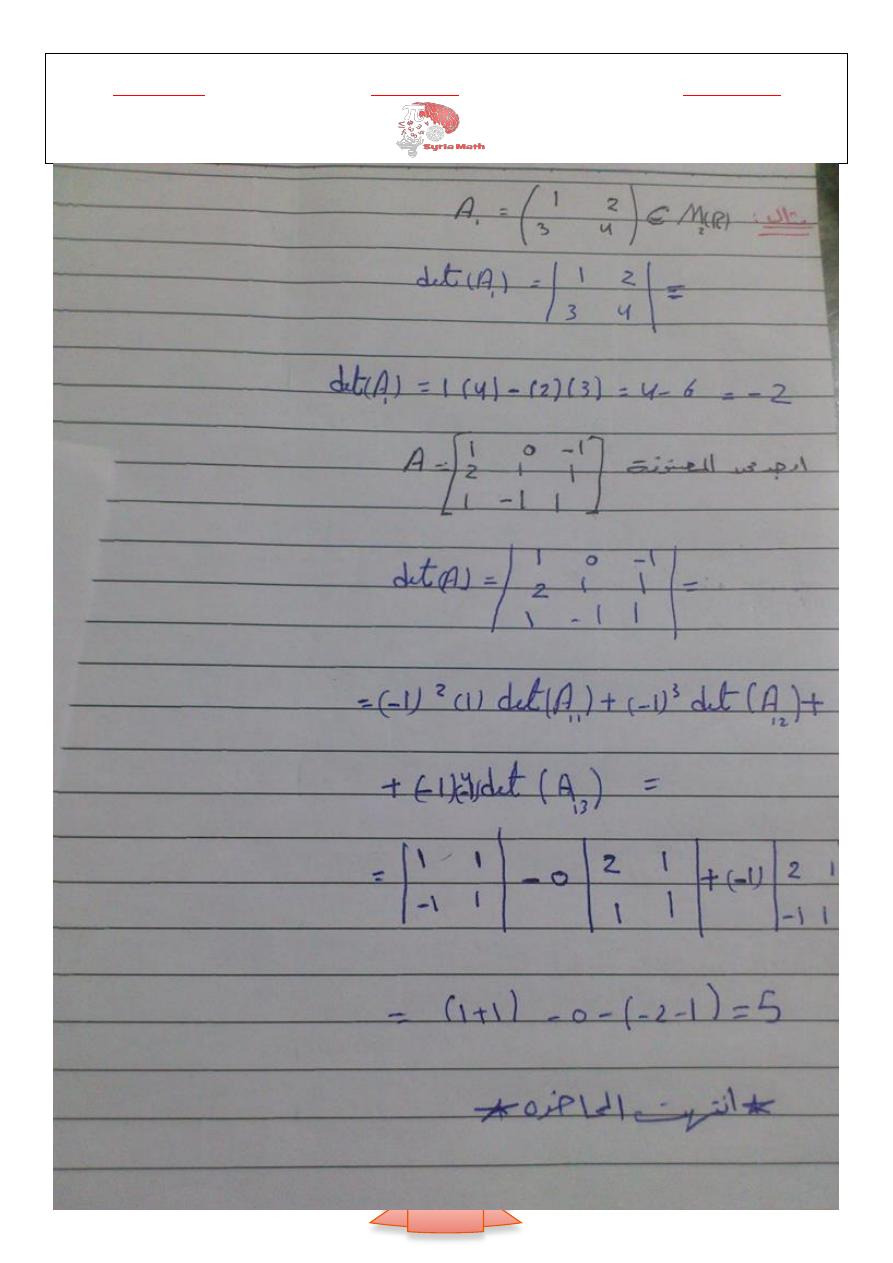 Syria Math
مثال: A₁ = (1 2 / 3 4) ∈ M₂(R)
det(A₁) = |1 2 / 3 4| =
det(A₁) = 1(4) - (2)(3) = 4 - 6 = -2
المصفوفة A = [1 0 -1 / 2 1 1 / 1 -1 1]
det(A) = |1 0 -1 / 2 1 1 / 1 -1 1| =
= (-1)² (1) det(A₁₁) + (-1)³ det(A₁₂) +
+ (-1)⁴(-1) det(A₁₃) =
= |1 1 / -1 1| - 0 |2 1 / 1 1| + (-1) |2 1 / -1 1|
= (1+1) - 0 - (-2-1) = 5
* انتهت المحاضرة *